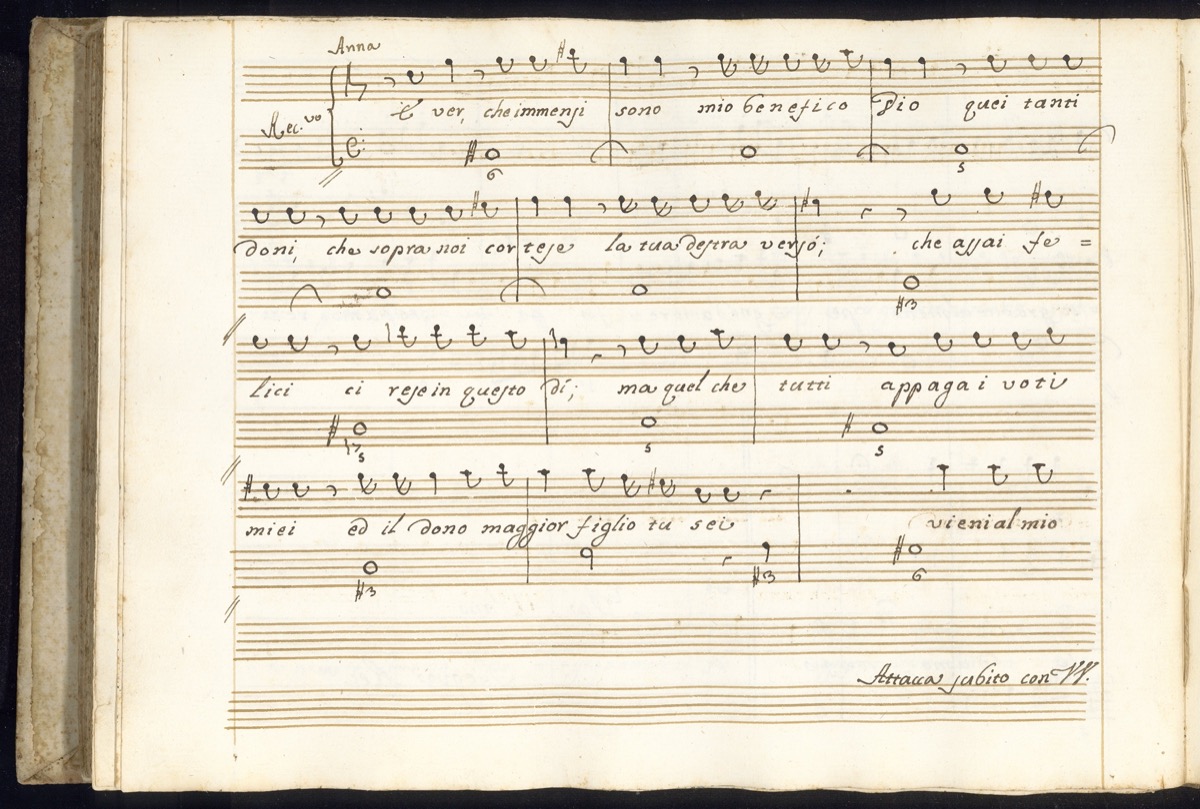 Anna
Rec.vo
È ver, che immensi sono mio benefico Dio quei tanti
6 5
doni, che sopra noi cortese la tua destra versò; che assai fe =
#3
lici ci rese in questo dí; ma quel che tutti appaga i voti
5 5 5
miei ed il dono maggior figlio tu sei vieni al mio
#3 #3 6
Attacca subito con VV.